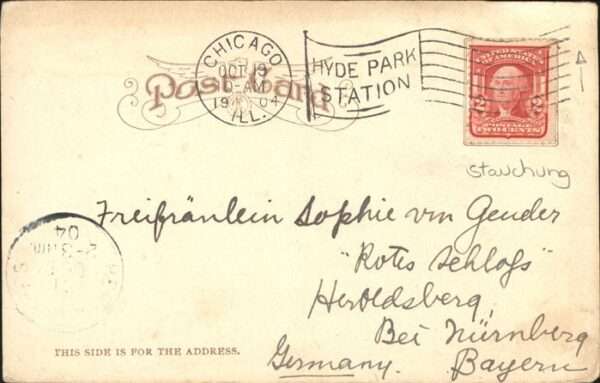 CHICAGO
OCT 19
-AM
1904
ILL.
HYDE PARK
STATION
Post Card
UNITED STATES
OF AMERICA
2 2
POSTAGE
TWO CENTS
stauchung
Freifräulein Sophie von Geuder
"Rotes Schloſs"
Heroldsberg
Bei Nürnberg
Germany. Bayern
04
2-3 NM
THIS SIDE IS FOR THE ADDRESS.